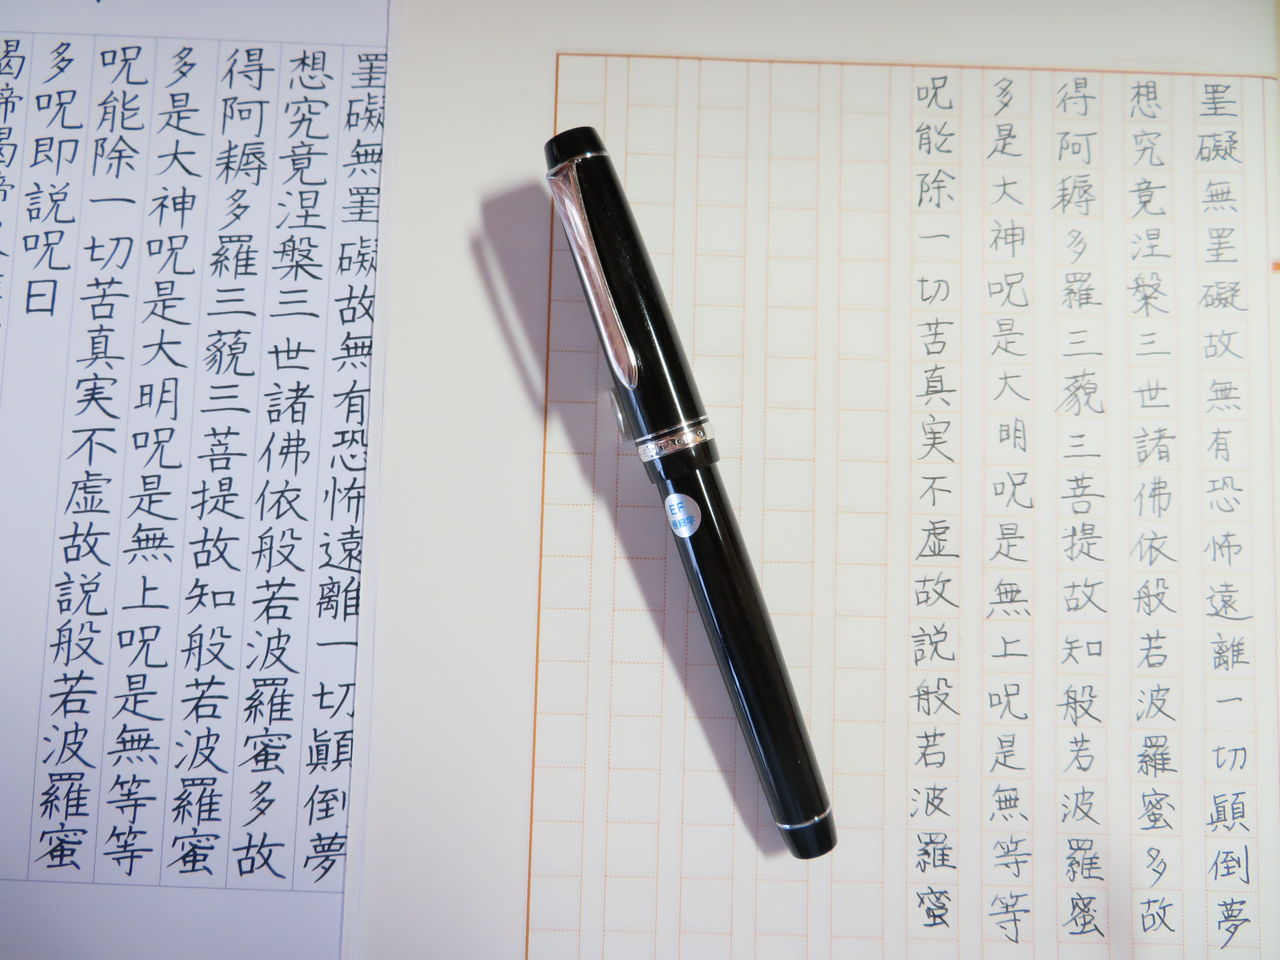 罣礙無罣礙故無有恐怖遠離一切顚倒夢
想究竟涅槃三世諸佛依般若波羅蜜多故
得阿耨多羅三藐三菩提故知般若波羅蜜
多是大神呪是大明呪是無上呪是無等等
呪能除一切苦真実不虚故説般若波羅蜜
EF
罣礙無罣礙故無有恐怖遠離一切顚倒夢
想究竟涅槃三世諸佛依般若波羅蜜多故
得阿耨多羅三藐三菩提故知般若波羅蜜
多是大神呪是大明呪是無上呪是無等等
呪能除一切苦真実不虚故説般若波羅蜜
多呪即説呪曰